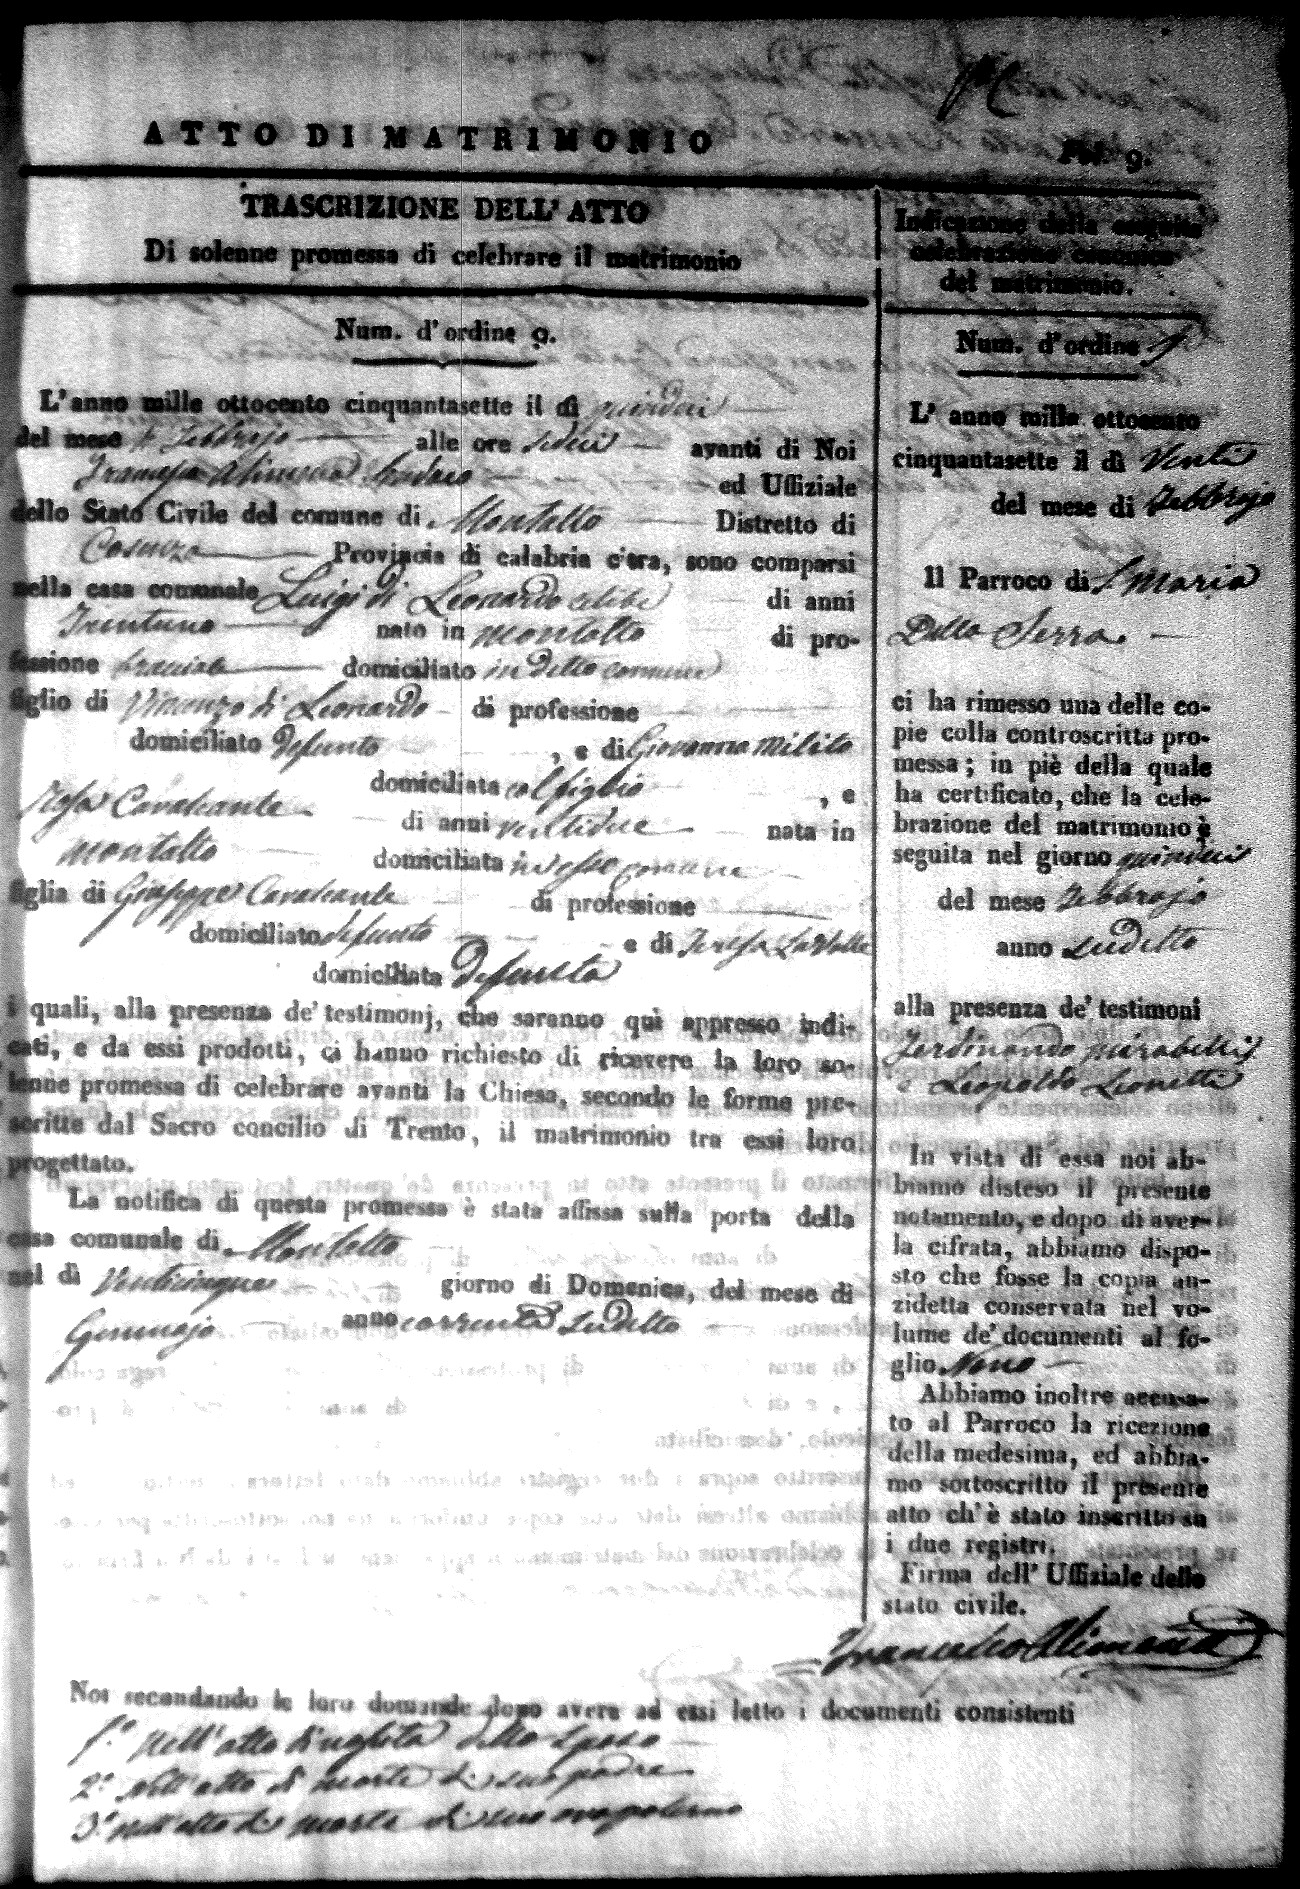 ATTO DI MATRIMONIO
Fol. 9.
TRASCRIZIONE DELL' ATTO
Di solenne promessa di celebrare il matrimonio
Num. d' ordine 9.
L' anno mille ottocento cinquantasette il dì quindici
del mese di Febbrajo alle ore sedici avanti di Noi
Francesco Alimena Sindaco ed Uffiziale
dello Stato Civile del comune di Montalto Distretto di
Cosenza Provincia di calabria citra, sono comparsi
nella casa comunale Luigi di Leonardo celibe di anni
Trentuno nato in Montalto di pro-
fessione bracciale domiciliato in detto comune
figlio di Vincenzo di Leonardo di professione
domiciliato defunto , e di Giovanna Milito
domiciliata col figlio , e
Rosa Cavalcante di anni ventidue nata in
Montalto domiciliata in esso comune
figlia di Giuseppe Cavalcante di professione
domiciliato defunto e di Teresa
domiciliata Defunta
i quali, alla presenza de' testimonj, che saranno quì appresso indi-
cati, e da essi prodotti, ci hanno richiesto di ricevere la loro so-
lenne promessa di celebrare avanti la Chiesa, secondo le forme pre-
scritte dal Sacro concilio di Trento, il matrimonio tra essi loro
progettato.
La notifica di questa promessa è stata affissa sulla porta della
casa comunale di Montalto
nel dì Venticinque giorno di Domenica, del mese di
Gennajo anno corrente sudetto
Noi secondando le loro domande dopo avere ad essi letto i documenti consistenti
1.° Nell' atto di nascita dello sposo
2.° Nell' atto di morte di suo padre
3.° Nell' atto di morte di suo avo paterno
Indicazione della seguita
celebrazione canonica
del matrimonio.
Num. d' ordine
L' anno mille ottocento
cinquantasette il dì Venti
del mese di Febbrajo
Il Parroco di S Maria
Della Serra
ci ha rimesso una delle co-
pie colla controscritta pro-
messa; in piè della quale
ha certificato, che la cele-
brazione del matrimonio è
seguita nel giorno quindici
del mese Febbrajo
anno sudetto
alla presenza de' testimoni
Ferdinando Mirabelli
e Leopoldo Lionetti
In vista di essa noi ab-
biamo disteso il presente
notamento, e dopo di aver-
la cifrata, abbiamo dispo-
sto che fosse la copia an-
zidetta conservata nel vo-
lume de' documenti al fo-
glio Nono
Abbiamo inoltre accusa-
to al Parroco la ricezione
della medesima, ed abbia-
mo sottoscritto il presente
atto ch' è stato inscritto su
i due registri.
Firma dell' Uffiziale dello
stato civile.
Francesco Alimena